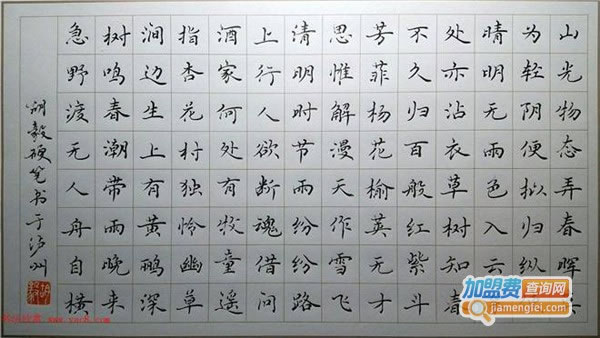 山光物态弄春晖
为轻阴便拟归纵
晴明无雨色入云
处亦沾衣草树知春
不久归百般红紫斗
芳菲杨花榆荚无才
思惟解漫天作雪飞
清明时节雨纷纷路
上行人欲断魂借问
酒家何处有牧童遥
指杏花村独怜幽草
涧边生上有黄鹂深
树鸣春潮带雨晚来
急野渡无人舟自横
胡毅硬笔书于泸州
加盟费查询网
jiamengfei.com
www.yac8.com